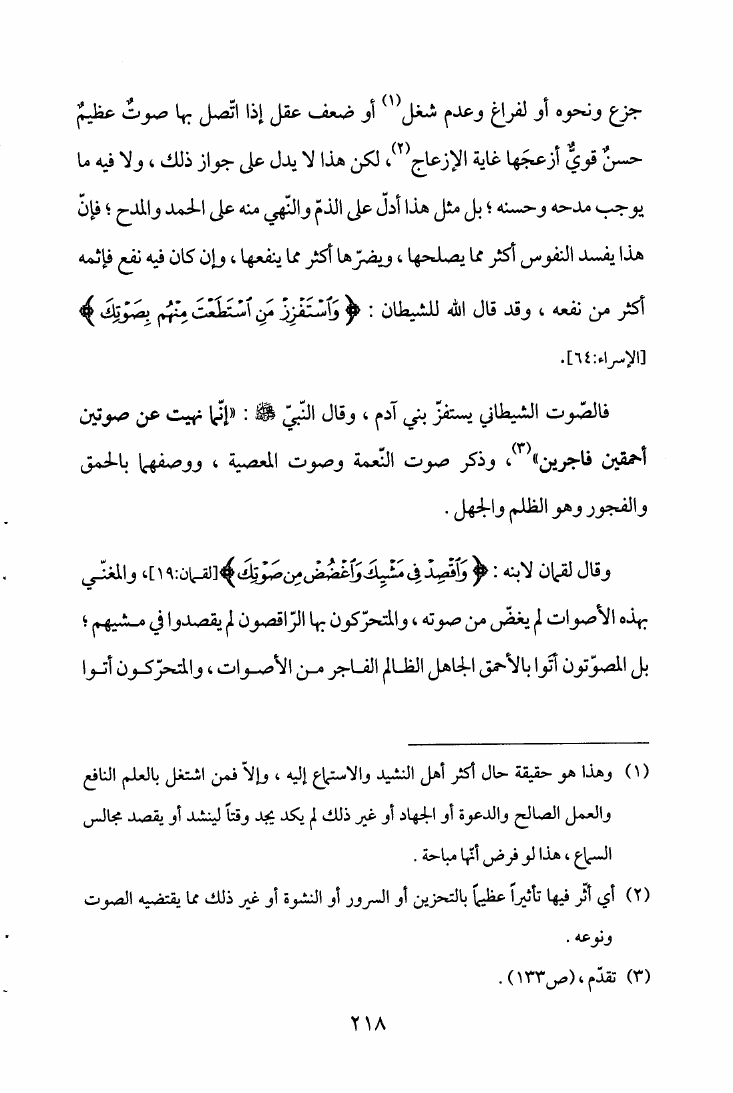 جزع ونحوه أو لفراغ وعدم شغل(١) أو ضعف عقل إذا اتّصل بها صوتٌ عظيمٌ
حسنٌ قويٌّ أزعجَها غاية الإزعاج(٢)، لكن هذا لا يدل على جواز ذلك ، ولا فيه ما
يوجب مدحه وحسنه ؛ بل مثل هذا أدلّ على الذمّ والنّهي منه على الحمد والمدح ؛ فإنّ
هذا يفسد النفوس أكثر مما يصلحها ، ويضرّها أكثر مما ينفعها ، وإن كان فيه نفع فإثمه
أكثر من نفعه ، وقد قال الله للشيطان : ﴿ وَٱسْتَفْزِزْ مَنِ ٱسْتَطَعْتَ مِنْهُم بِصَوْتِكَ ﴾
[الإسراء:٦٤].
فالصّوت الشيطاني يستفزّ بني آدم ، وقال النّبيّ ﷺ : «إنّما نهيت عن صوتين
أحمقين فاجرين»(٣)، وذكر صوت النّعمة وصوت المعصية ، ووصفهما بالحمق
والفجور وهو الظلم والجهل .
وقال لقمان لابنه : ﴿ وَٱقْصِدْ فِى مَشْيِكَ وَٱغْضُضْ مِن صَوْتِكَ ﴾[لقمان:١٩]، والمغنّي
بهذه الأصوات لم يغضّ من صوته ، والمتحرّكون بها الرّاقصون لم يقصدوا في مشيهم ؛
بل المصوّتون أتَوا بالأحمق الجاهل الظالم الفاجر من الأصوات ، والمتحرّكون أتوا
(١) وهذا هو حقيقة حال أكثر أهل النشيد والاستماع إليه ، وإلاّ فمن اشتغل بالعلم النافع
والعمل الصالح والدعوة أو الجهاد أو غير ذلك لم يكد يجد وقتاً لينشد أو يقصد مجالس
السماع ، هذا لو فرض أنّها مباحة .
(٢) أي أثّر فيها تأثيراً عظيماً بالتحزين أو السرور أو النشوة أو غير ذلك مما يقتضيه الصوت
ونوعه .
(٣) تقدّم ، (ص١٣٣) .
٢١٨